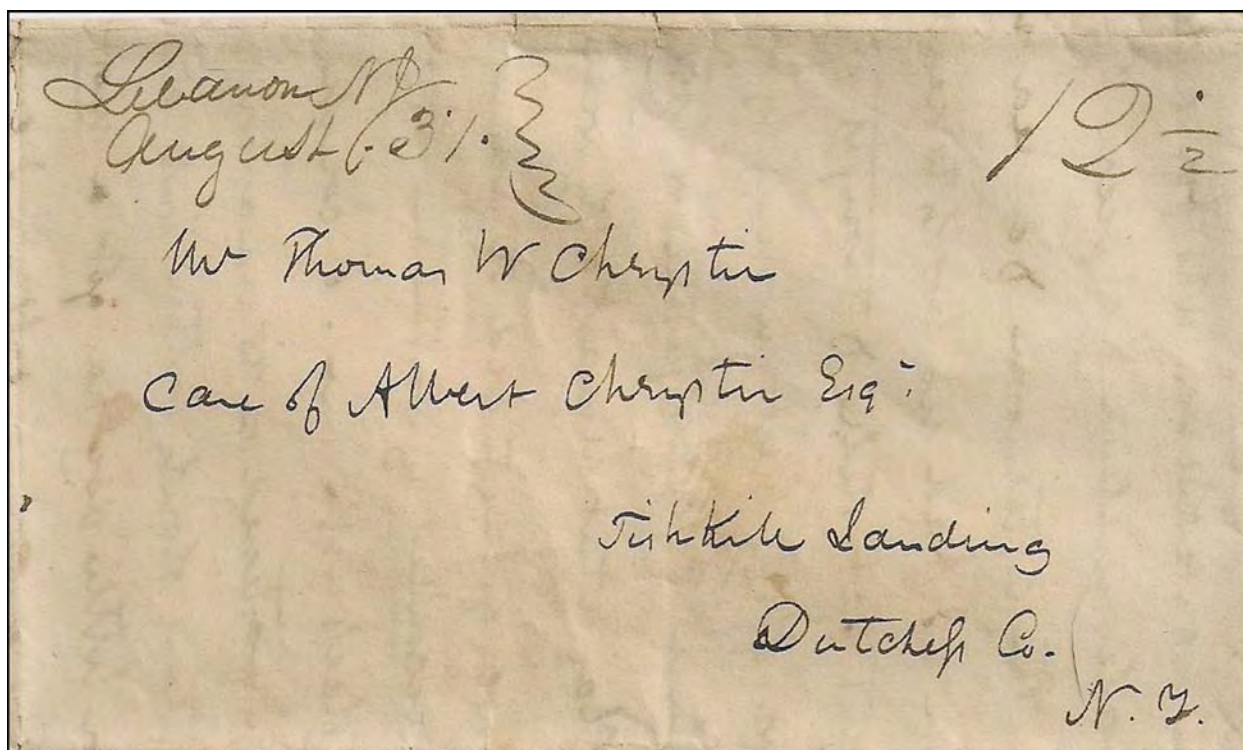 Lebanon NJ
August 31.
12 1/2
Mr Thomas W Chrystie
Care of Albert Chrystie Esqr.
Fishkill Landing
Dutchess Co.
N. Y.